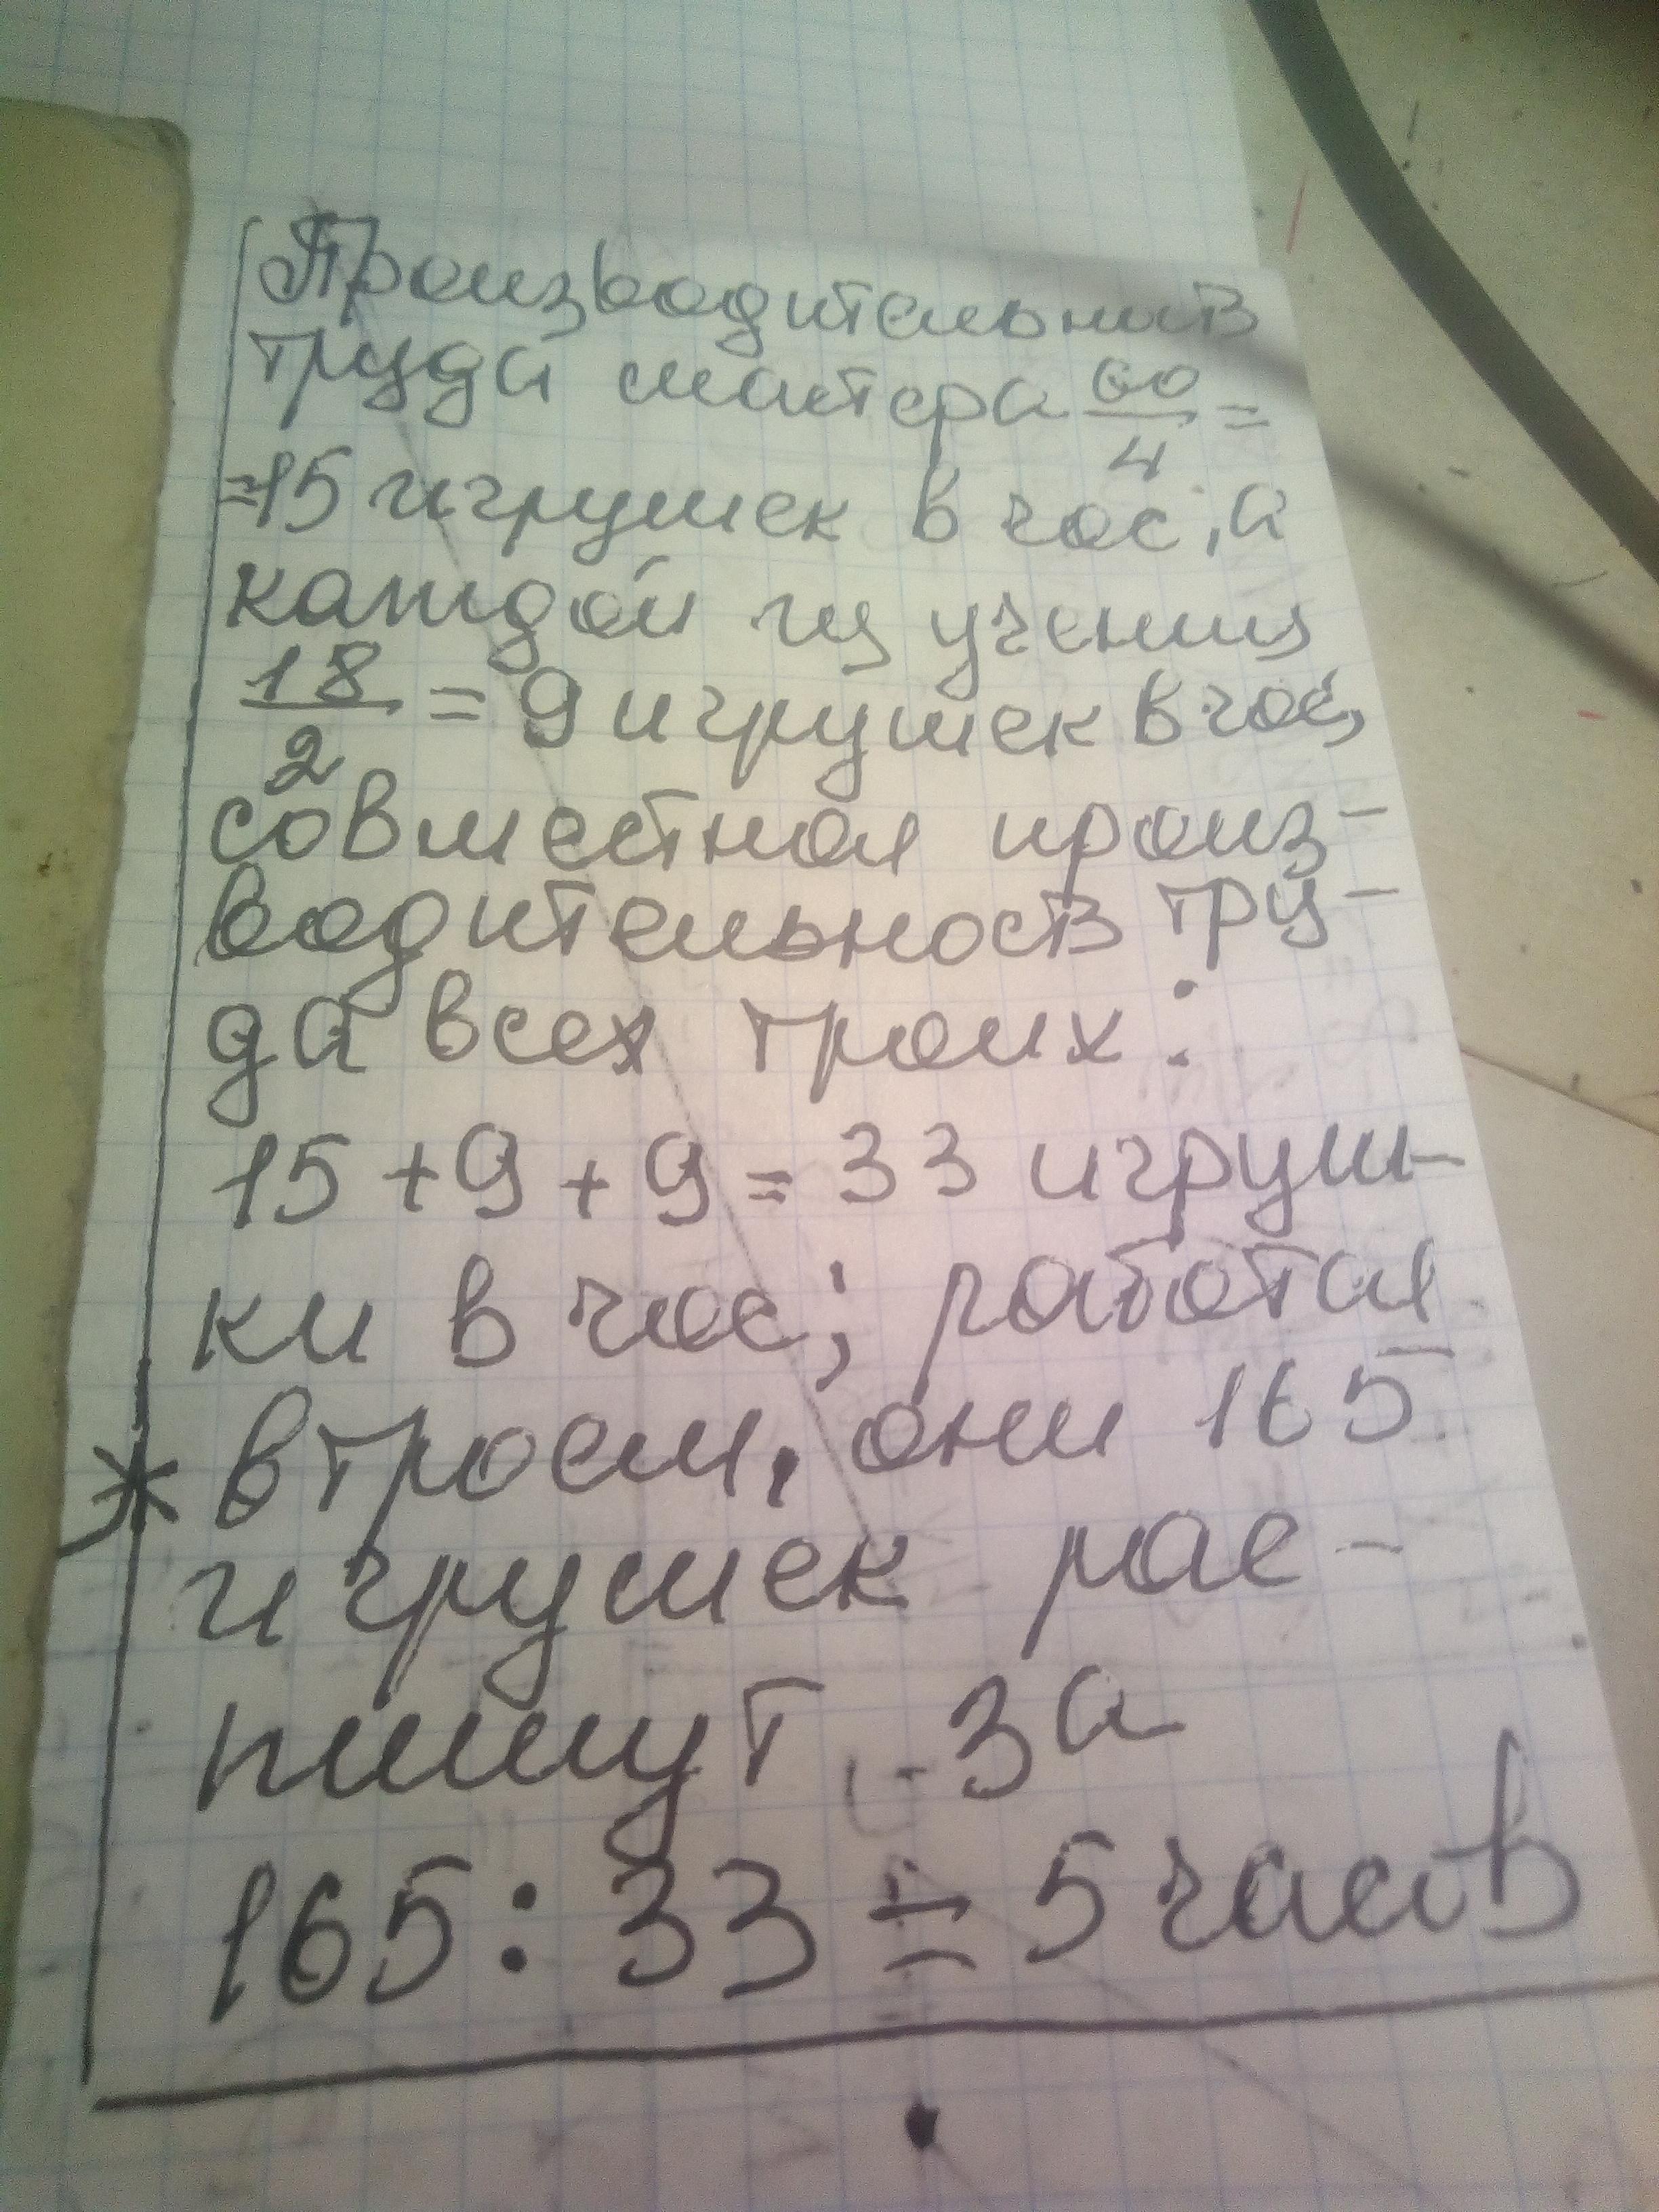 Производительность
труда мастера 60/4 =
=15 игрушек в час, а
каждой из учениц
18/2 = 9 игрушек в час,
совместная произ-
водительность тру-
да всех троих:
15 + 9 + 9 = 33 игруш-
ки в час; работая
втроем, они 165
игрушек рас-
пишут за
165 : 33 = 5 часов